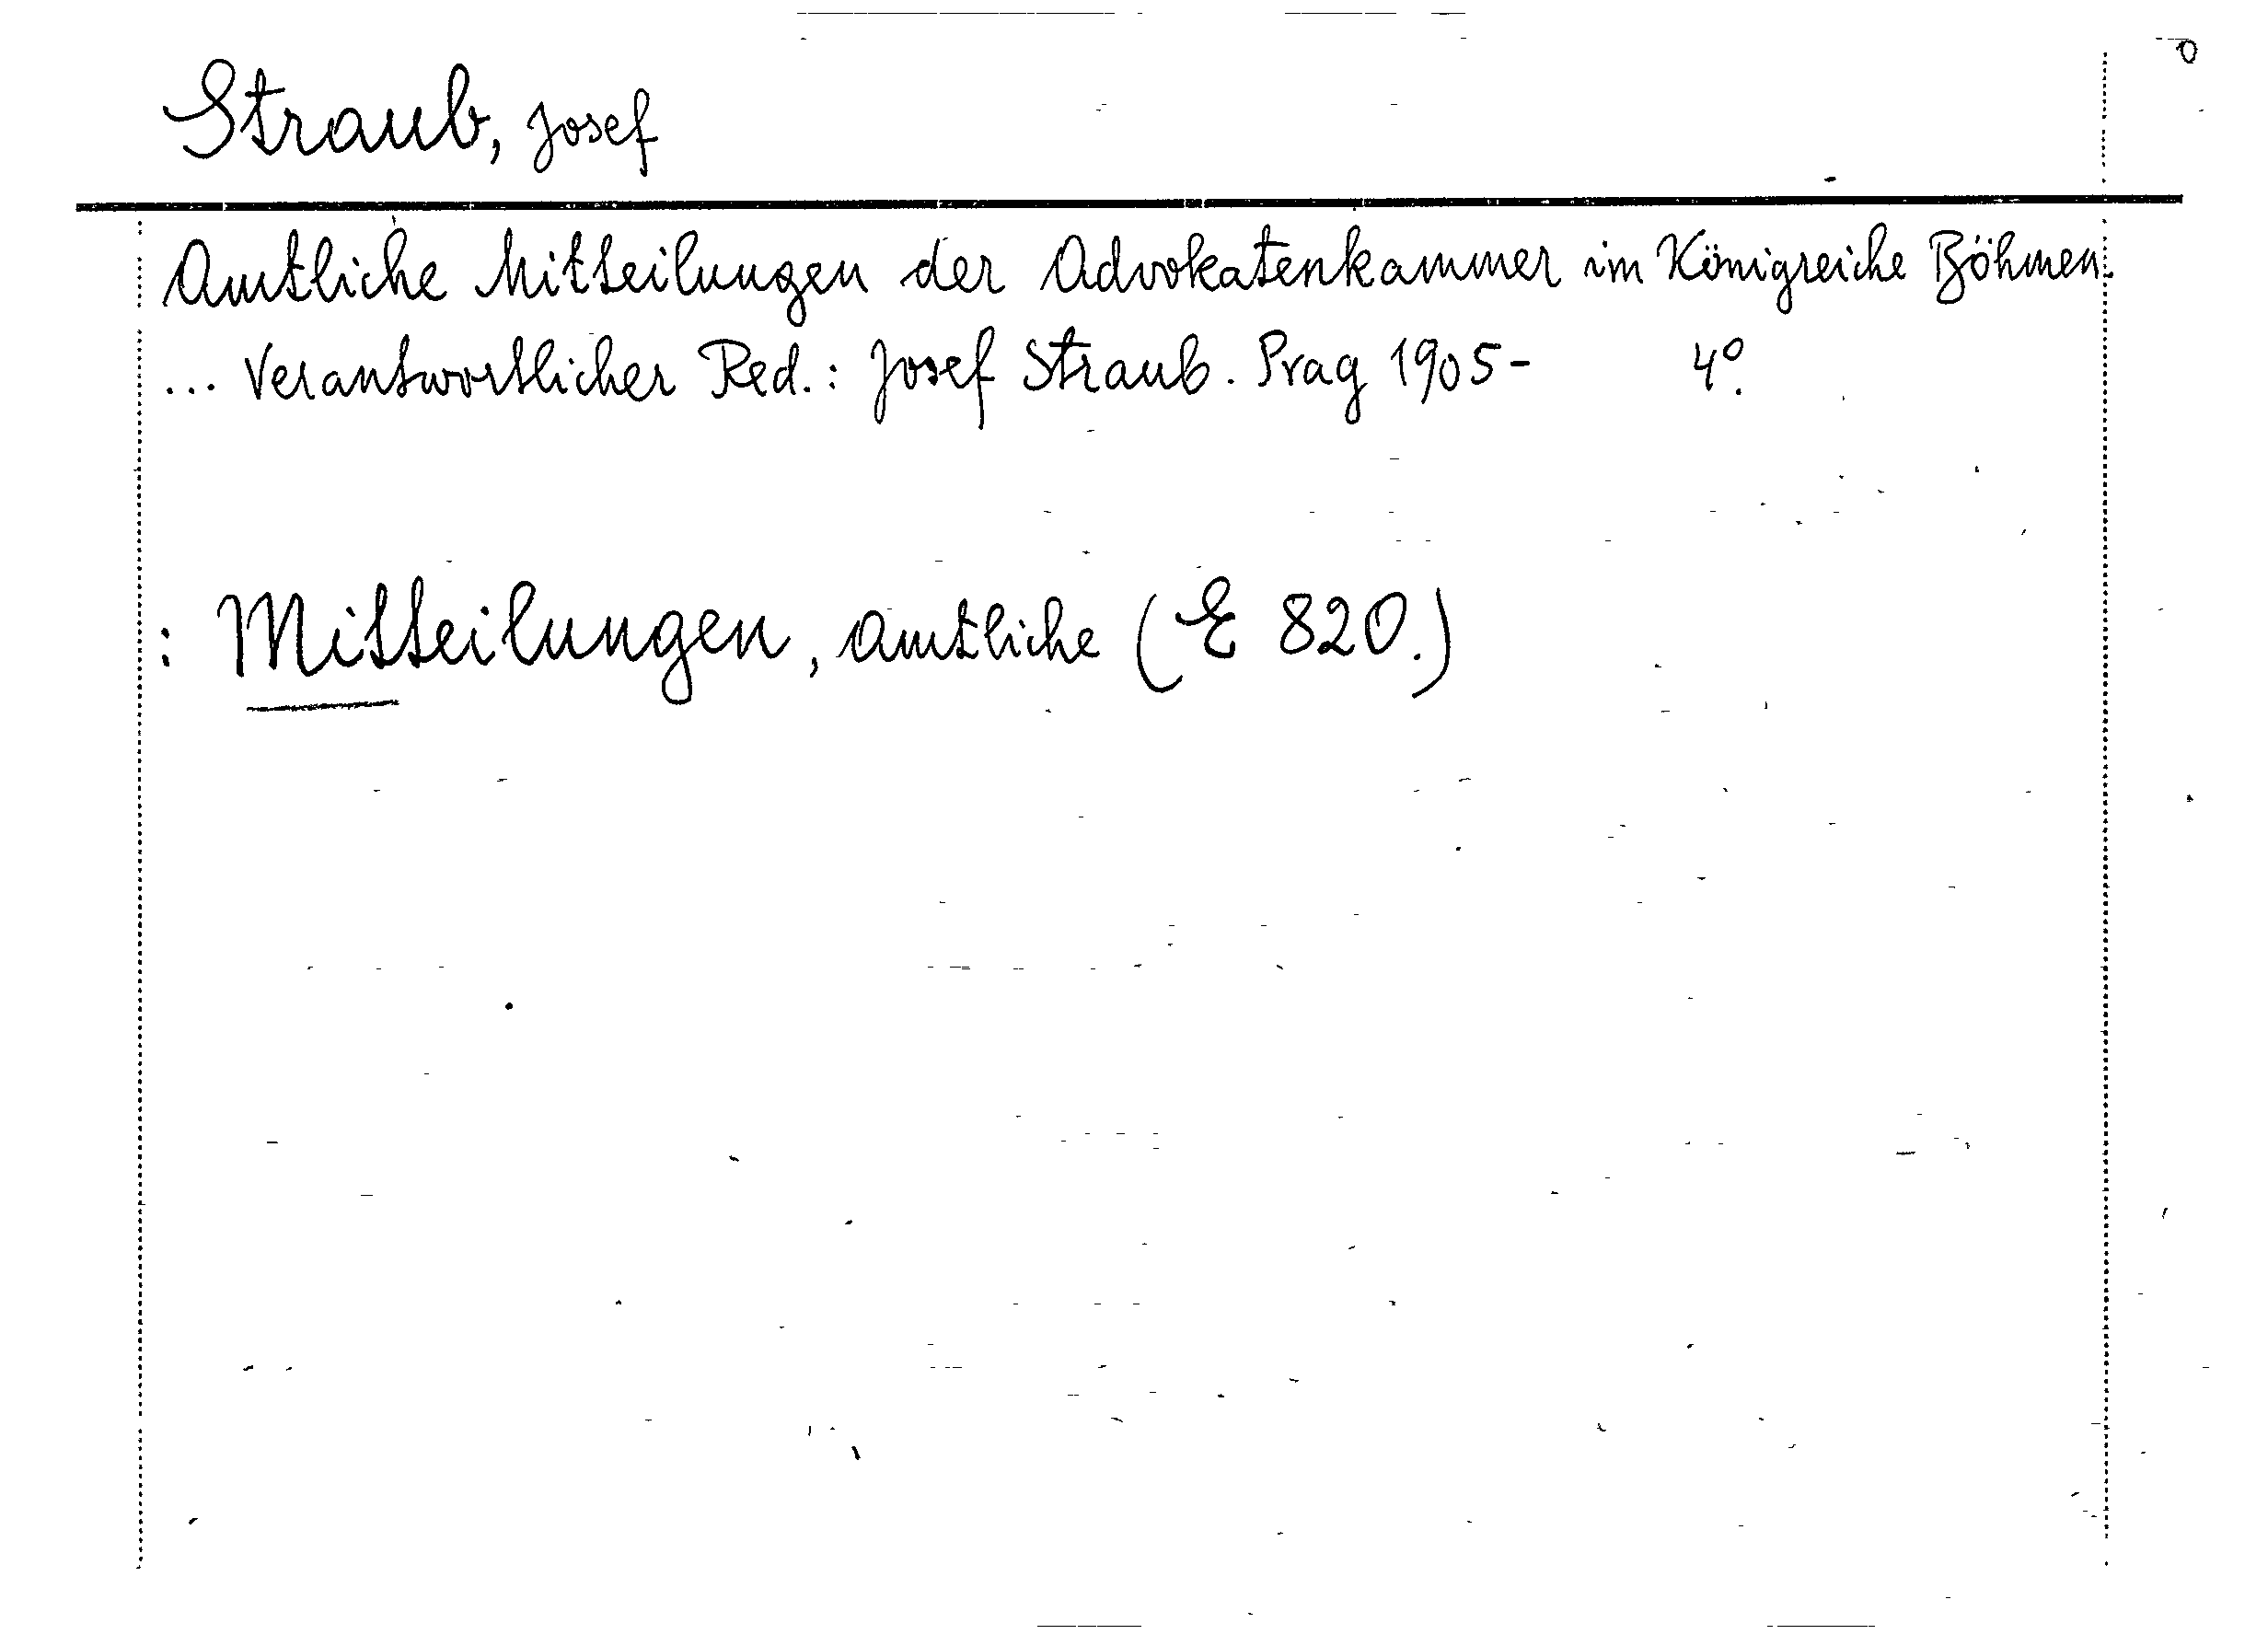 Straub, Josef
Amtliche Mitteilungen der Advokatenkammer im Königreiche Böhmen.
... Verantwortlicher Red.: Josef Straub. Prag 1905- 4°.
: Mitteilungen, amtliche (E 820.)